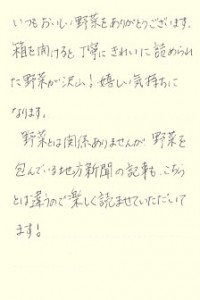 いつもおいしい野菜をありがとうございます。
箱を開けると丁寧にきれいに詰められ
た野菜が沢山！嬉しい気持ちに
なります。
野菜とは関係ありませんが野菜を
包んでいる地方新聞の記事も、こちら
とは違うので楽しく読ませていただいて
ます！